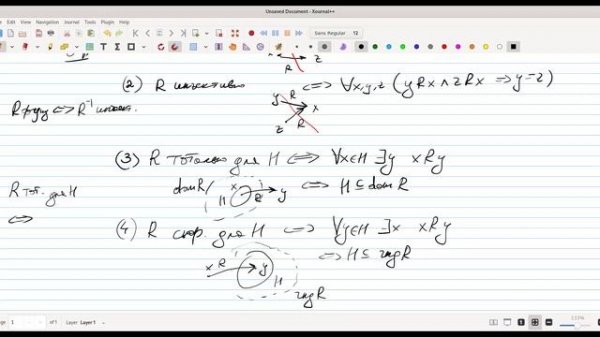 Unsaved Document - Xournal++
File Edit View Navigation Journal Tools Plugin Help
Sans Regular 12
R z
(2) R инъективно ⟺ ∀x,y,z (yRx ∧ zRx ⇒ y=z)
y R x
R функ ⟺ R⁻¹ инъек.
z R
(3) R тотально для H ⟺ ∀x∈H ∃y xRy
dom R x H R y ⟺ H ⊆ dom R
R тот. для H
⟺
(4) R сюр. для H ⟺ ∀y∈H ∃x xRy
x R y H ⟺ H ⊆ rng R
rng R
Page 1 of 1 Layer Layer1